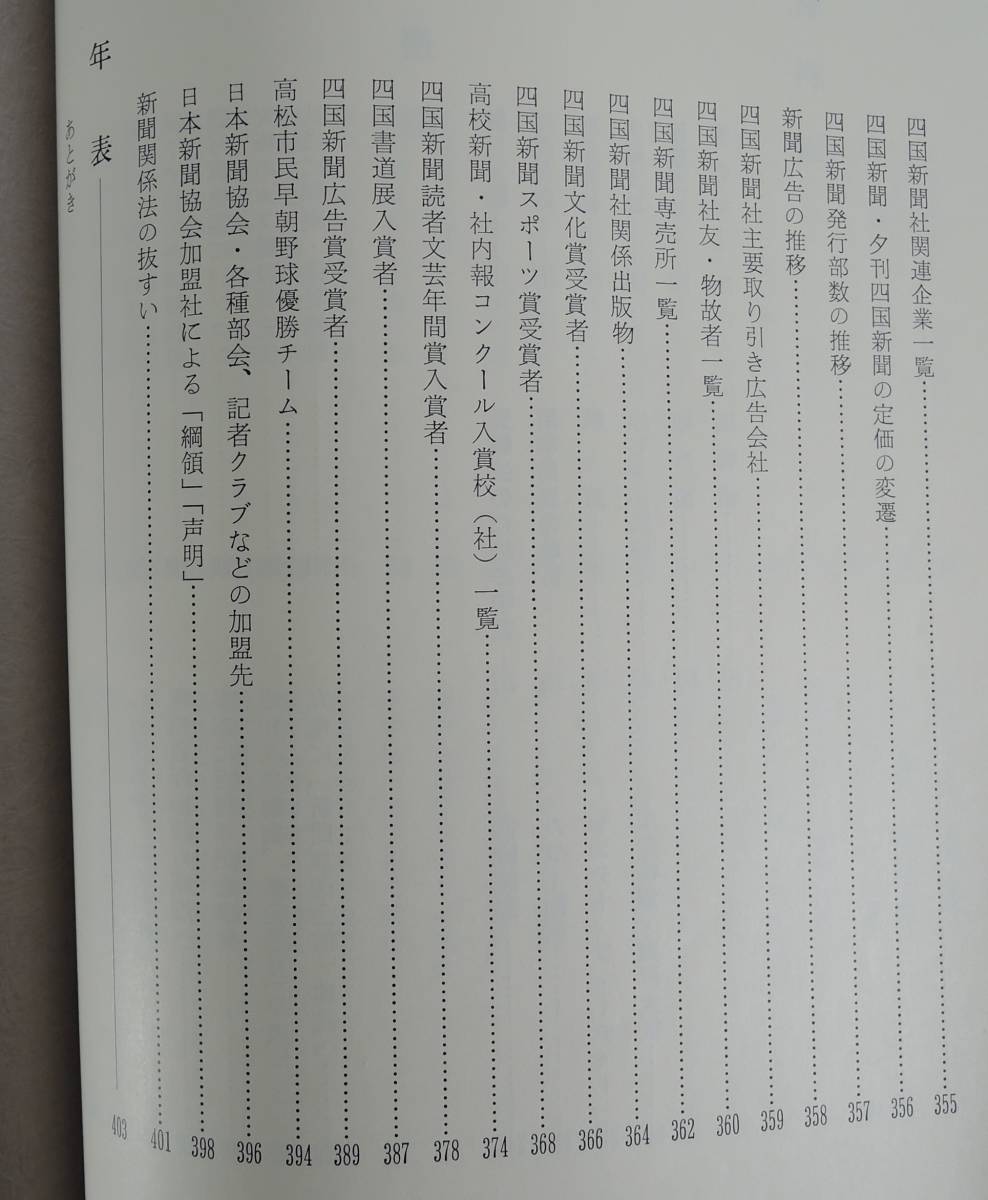 四国新聞社関連企業一覧……355
四国新聞・夕刊四国新聞の定価の変遷……356
四国新聞発行部数の推移……357
新聞広告の推移……358
四国新聞社主要取り引き広告会社……359
四国新聞社友・物故者一覧……360
四国新聞専売所一覧……362
四国新聞社関係出版物……364
四国新聞文化賞受賞者……366
四国新聞スポーツ賞受賞者……368
高校新聞・社内報コンクール入賞校（社）一覧……374
四国新聞読者文芸年間賞入賞者……378
四国書道展入賞者……387
四国新聞広告賞受賞者……389
高松市民早朝野球優勝チーム……394
日本新聞協会・各種部会、記者クラブなどの加盟先……396
日本新聞協会加盟社による「綱領」「声明」……398
新聞関係法の抜すい……401
年表――403
あとがき